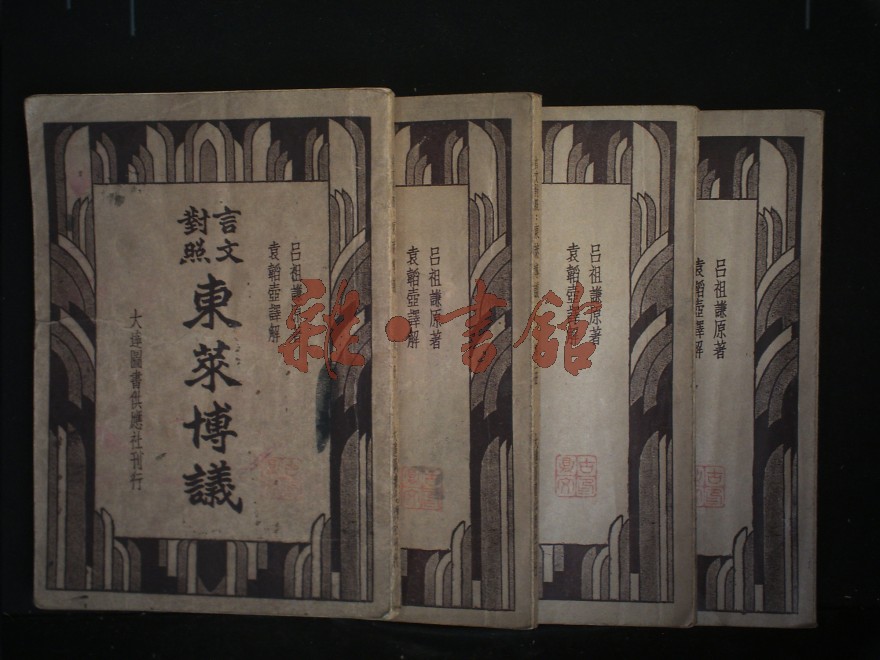 呂祖謙原著
袁韜壺譯解
言文
對照
東萊博議
大連圖書供應社刊行
呂祖謙原著
袁韜壺譯解
呂祖謙原著
袁韜壺譯解
呂祖謙原著
袁韜壺譯解
雜·書館